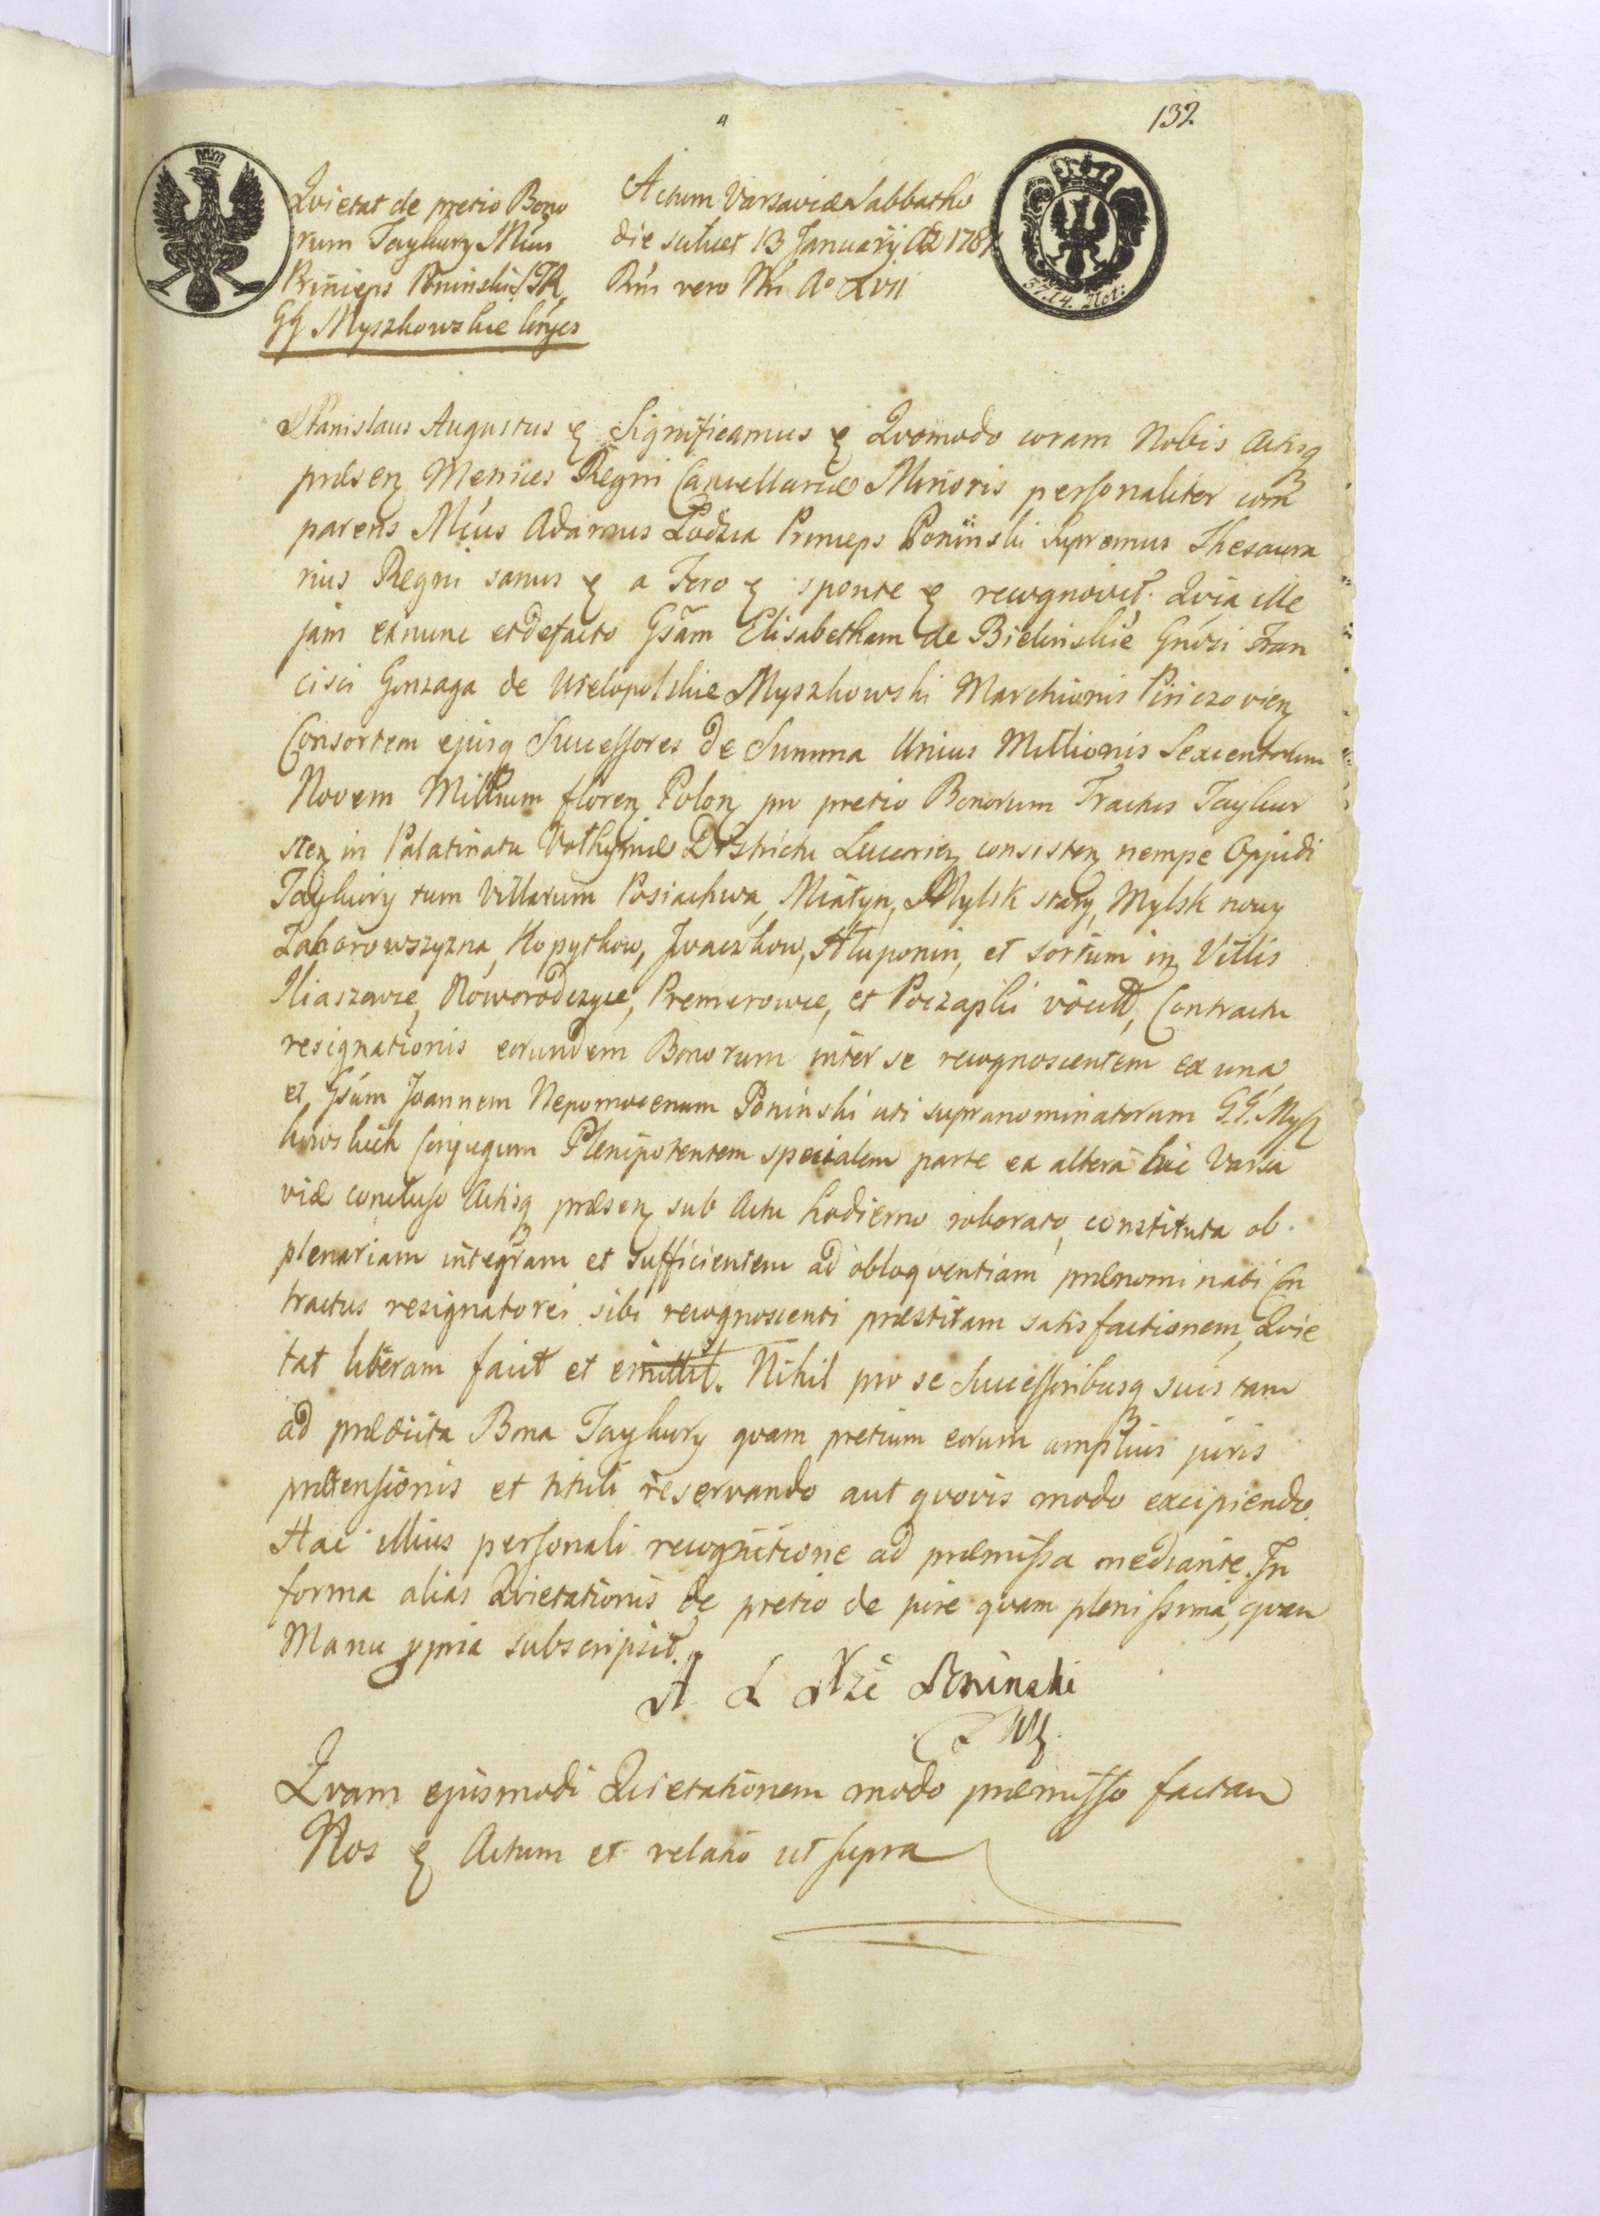 132
Qvietat de pretio Bono
rum Tayhury Mḿus
Princeps Poninski S.T.R.
GG Myszkowskie Cónjges
Actum Varsaviæ Sabbatho
die scilicet 13 January Ao 1781
Rńi vero Nri Ao XVII
37.14. Not:
Stanislaus Augustus & Significamus & Qvomodo coram Nobis Actisq
præsen Metrices Regni Cancellariæ Minoris personaliter com
parens Mḿus Adamus Lodzia Princeps Poninski Supremus Thesaura
rius Regni sanus & a Foro & sponte & recognovit. Qvia ille
jam ex nunc et de facto Gsam Elisabetham de Bielinskie Gnósi Fran
cisci Gonzaga de Wielopolskie Myszkowski Marchionis Pinczovien
Consortem ejusq Successores de Summa Unius Millionis Sexcentorum
Novem Millium floren Polon pro pretio Bonorum Tractus Tayhur
sten in Palatinatu Volhyniæ Districtu Luceorien consisten nempe Oppidi
Tayhury tum Villarum Posiachwa, Miatyn, Mylsk stary, Mylsk nowy
Zaborowszyzna, Kopytkow, Jwaczkow, Hluponin, et sortium in Villis
Iliaszowce, Noworodczyce, Premerowce, et Poczapki vocat, Contractu
resignationis eorundem Bonorum inter se recognoscentem ex una
et Gsúm Joannem Nepomucenum Poninski uti supranominatorum G.G. Mysz
kowskich Conjugum Plenipotentem specialem parte ex altera hic Varsa
viæ concluso Actisq præsen sub Actu hodierno roborato, constituta ob
plenariam integram et sufficientem ad obloqventiam prænominati Con
tractus resignatorei sibi recognoscenti præstitam satisfactionem, Qvie
tat liberam facit et emittit. Nihil pro se Successoribusq suis tam
ad prædicta Bona Tayhury qvam pretium eorum amplius juris
prætensionis et tituli reservando aut qvovis modo excipiendo.
Hac illius personali recognitione ad præmissa mediante. In
forma alias Qvietationis de pretio de jure qvam plenissima, qvam
Manu ppria subscripsit.
A L Xże Poninski
Qvam ejusmodi Qvietationem modo præmisso factam
Nos & Actum et relatio ut supra